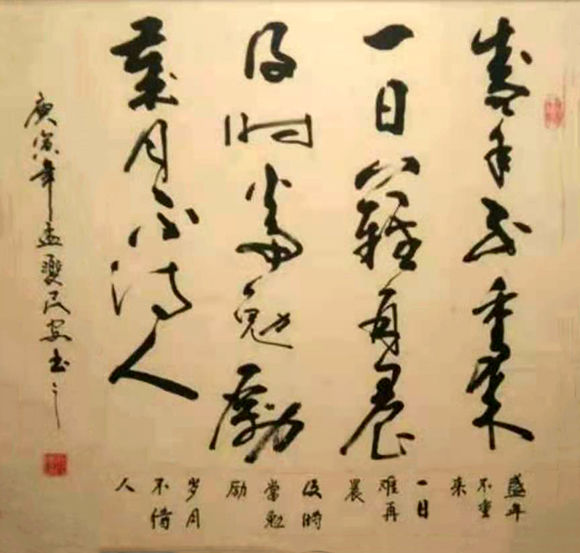 盛年不重来
一日難再晨
及时當勉勵
歲月不待人
庚寅年孟夏民安书
盛年
不重
来
一日
难再
晨
及時
當勉
励
岁月
不待
人